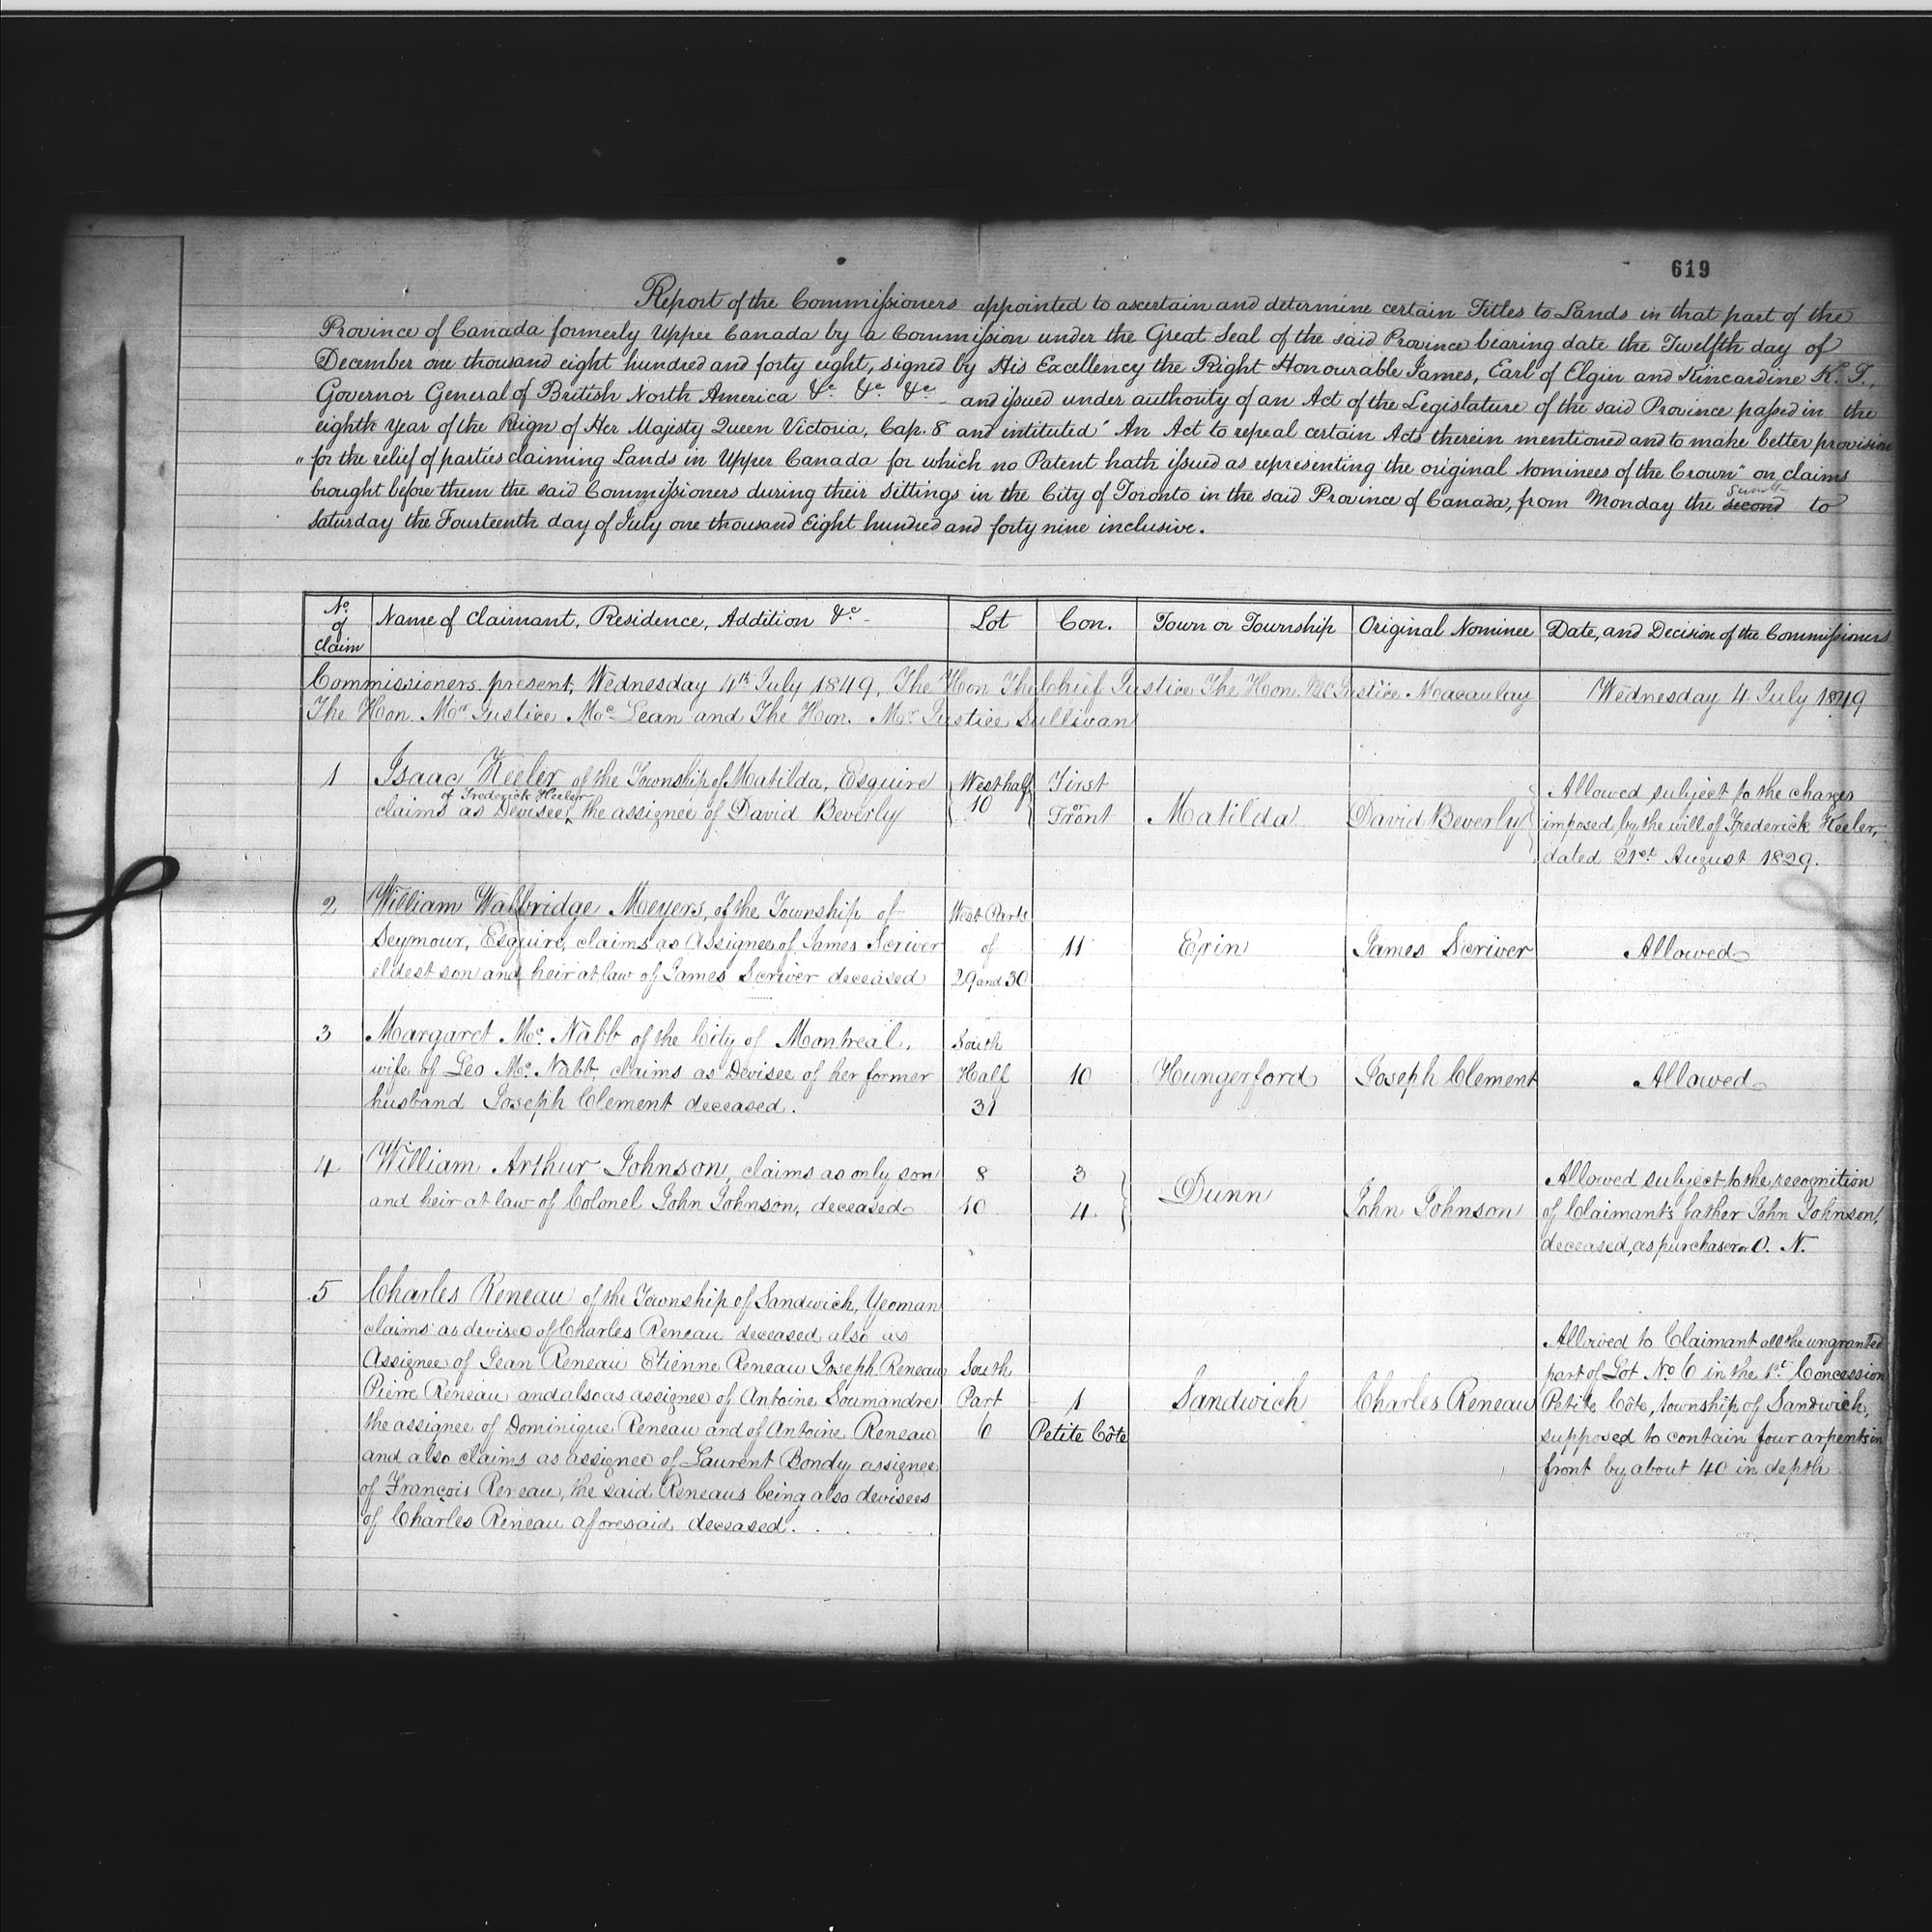 619
Report of the Commissioners appointed to ascertain and determine certain Titles to Lands in that part of the
Province of Canada formerly Upper Canada by a Commission under the Great Seal of the said Province bearing date the Twelfth day of
December one thousand eight hundred and forty eight, signed by His Excellency the Right Honourable James, Earl of Elgin and Kincardine K. T.,
Governor General of British North America &c &c &c and issued under authority of an Act of the Legislature of the said Province passed in the
eighth Year of the Reign of Her Majesty Queen Victoria, Cap. 8 and intituted "An Act to repeal certain Acts therein mentioned and to make better provision
"for the relief of parties claiming Lands in Upper Canada for which no Patent hath issued as representing the original Nominees of the Crown" on claims
brought before them the said Commissioners during their Sittings in the City of Toronto in the said Province of Canada, from Monday the second to
Saturday the Fourteenth day of July one thousand Eight hundred and forty nine inclusive.
No. of Claim
Name of Claimant, Residence, Addition &c. -
Lot
Con.
Town or Township
Original Nominee
Date, and Decision of the Commissioners
Commissioners present, Wednesday 4th July 1849, The Hon The Chief Justice The Hon. Mr Justice Macaulay
The Hon. Mr Justice McLean and The Hon. Mr Justice Sullivan
Wednesday 4 July 1849
1
Isaac Keeler of the Township of Matilda, Esquire
of Frederick Keeler
claims as Devisee, the assignee of David Beverly
West half
10
First
or
Front
Matilda
David Beverly
Allowed subject to the charges
imposed by the will of Frederick Keeler,
dated 21st August 1829.
2
William Walbridge Meyers, of the Township of
Seymour, Esquire, claims as Assignee of James Scriver
eldest son and heir at law of James Scriver deceased
West Parts
of
29 and 30
11
Erin
James Scriver
Allowed
3
Margaret Mc Nabb of the City of Montreal,
wife of Leo Mc Nabb, claims as Devisee of her former
husband Joseph Clement deceased.
South
Half
31
10
Hungerford
Joseph Clement
Allowed
4
William Arthur Johnson, claims as only son
and heir at law of Colonel John Johnson, deceased
8
10
3
4
Dunn
John Johnson
Allowed subject to the recognition
of Claimant's father John Johnson,
deceased, as purchaser or O. N.
5
Charles Reneau of the Township of Sandwich, Yeoman
claims as devisee of Charles Reneau deceased also as
Assignee of Jean Reneau Etienne Reneau Joseph Reneau
Pierre Reneau and also as assignee of Antoine Soumandre
the assignee of Dominique Reneau and of Antoine Reneau
and also claims as assignee of Laurent Bondy assignee
of François Reneau, the said Reneaus being also devisees
of Charles Reneau aforesaid deceased.
South
Part
6
1
Petite Côte
Sandwich
Charles Reneau
Allowed to Claimant all the ungranted
part of Lot No 6 in the 1st Concession
Petite Côte, township of Sandwich,
supposed to contain four arpents in
front by about 40 in depth